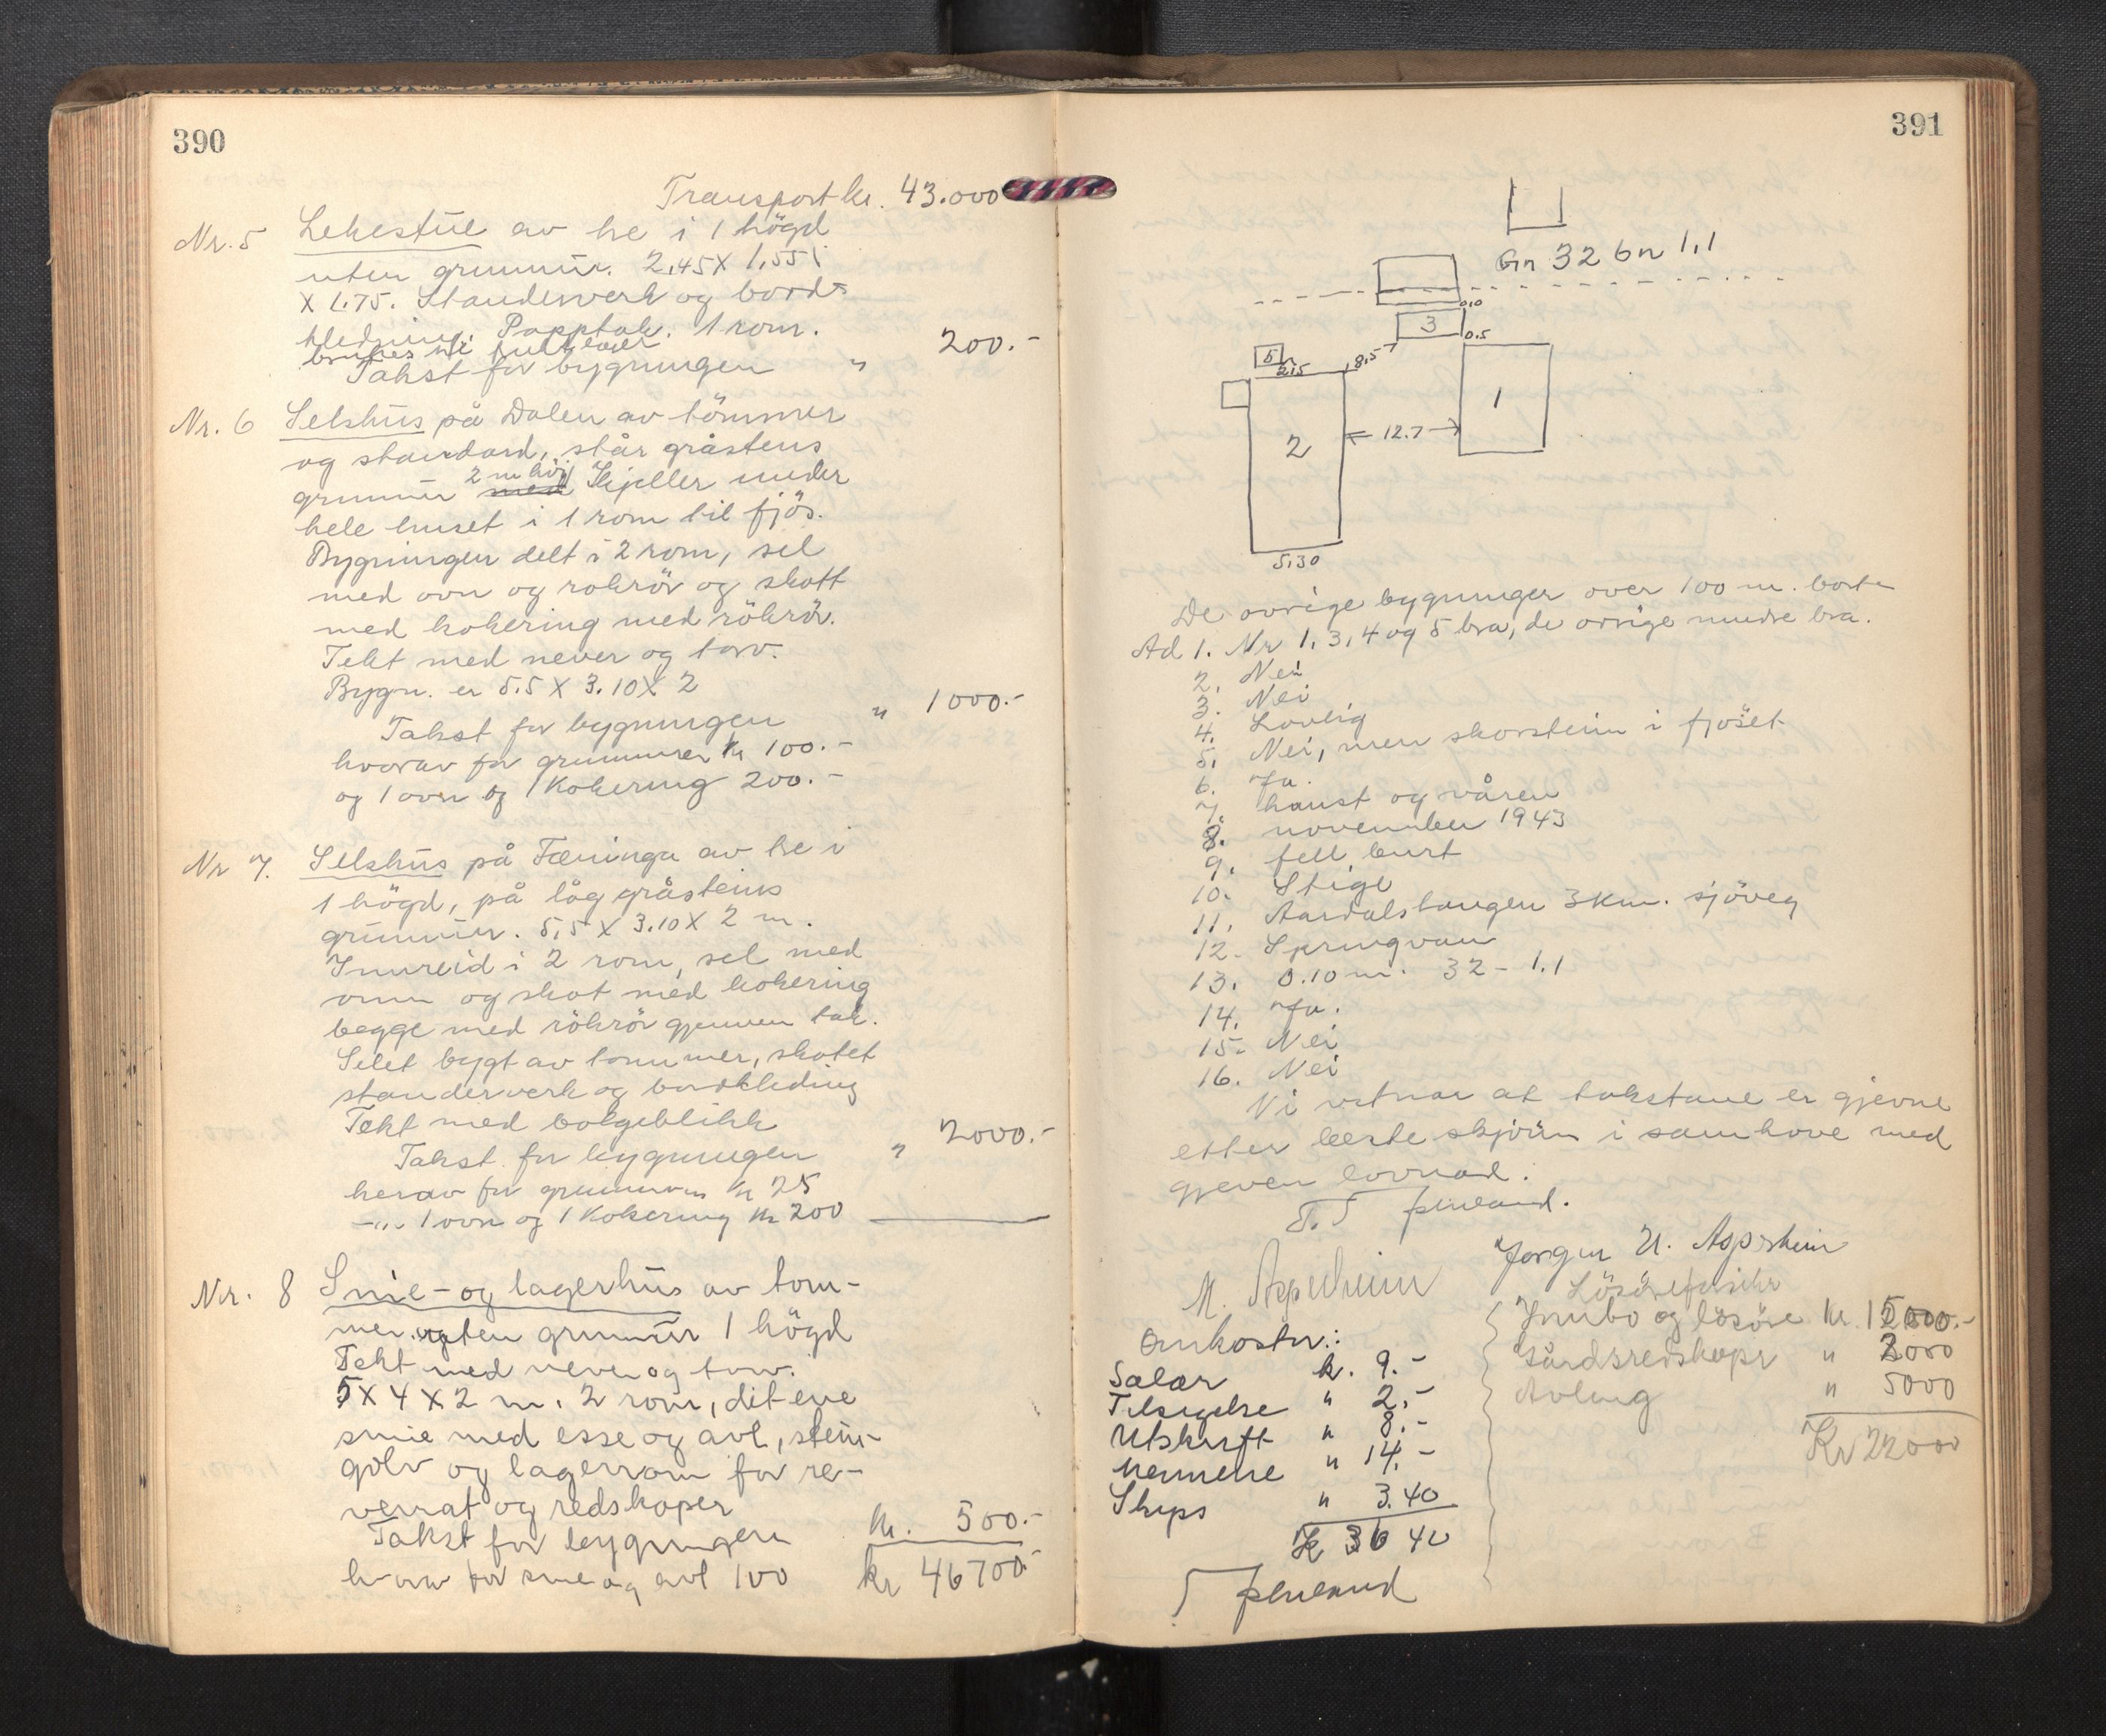 390
Transport kr. 43.000
Nr. 5 Lekestue av tre i 1 högd
uten grunnmur. 2,45 X 1,55
X 1.75. Standerverk og bord-
kledning. Papptak. 1 rom.
brukes til
Takst for bygningen " 200.-
Nr. 6 Selshus på Dalen av tömmer
og standard, står gråsteins
grunnmur 2 m höy med Kjeller under
hele huset i 1 rom til fjös.
Bygningen delt i 2 rom, sel
med ovn og rökrör og skott
med kokering med rökrör.
Tekt med never og torv.
Bygn. er 5.5 X 3.10 X 2
Takst for bygningen " 1000.-
hvorav for grunnmur kr 100.-
og 1 ovn og 1 Kokering 200.-
Nr 7. Selshus på Fæninga av tre i
1 högd, på låg gråsteins
grunnmur. 5,5 X 3.10 X 2 m.
Innreid i 2 rom, sel med
ovnn og skot med kokering
begge med rökrör gjennem tak.
Selet bygt av tommer, skotet
standerverk og bordkleding
Tekt med bolgeblikk
Takst for bygningen " 2000.-
herav for grunnmuren kr 25
-"- 1 ovn og 1 Kokering kr 200
Nr. 8 Smie- og lagerhus av tom-
mer. uten grunnmur 1 högd
Tekt med never og torv.
5 X 4 X 2 m. 2 rom, det ene
smie med esse og avl, stein-
golv og lagerrom for re-
verrat og redskaper
Takst for bygningen kr. 500.-
hvorav for smie og avl 100 kr 46700.-
391
Gn 32 bn 1,1
0,0
3
0.5
5
2,5
8.5
1
2
12.7
5,30
De ovrige bygninger over 100 m. borte
Ad 1. Nr 1, 3, 4 og 5 bra, de ovrige mindre bra.
2. Nei
3. Nei
4. Lovlig
5. Nei, men skorstein i fjöset
6. Ja.
7. haust og våren
8. november 1943
9. fell burt
10. Stige
11. Aardalstangen 3 km. sjöveg
12. Springvan
13. 0.10 m. 32 - 1.1
14. Ja.
15. Nei
16. Nei
Vi vitnar at takstane er gjevne
etter beste skjönn i samhöve med
gjeven lovnad.
Jorgen N. Asperheim
M. Asperheim
Omkostn:
Salær k. 9.-
Tilsigelse " 2.-
Utskrift " 8.-
Mennene " 14.-
Skyss " 3.40
K 36 40
Innbo og lösöre kr. 15000.-
Gårdsredskaper " 2000
Avling " 5000
Kr 22000